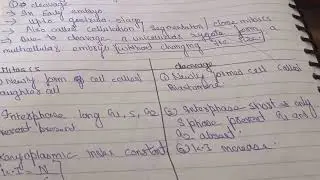 ① → cleavage
→ In Early embryo
→ Upto gastrula stage
→ Also called cellulation / Segmentation / clone mitosis
→ Due to cleavage a unicellular zygote form a
multicellular embryo without changing size
Mitosis
① Newly form cell called
daughter cell
Interphase long G1, S, G2
present
Karyoplasmic index constant
cleavage
① Newly formed cell called
Blastomere
② Interphase - short → only
S phase present G1 and
G2 absent
③ K.I increase